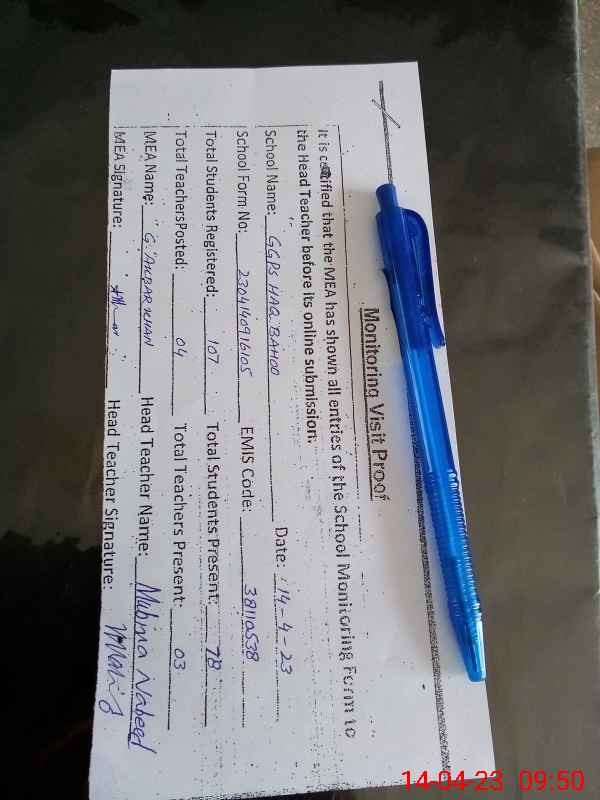 Monitoring Visit Proof
It is certified that the MEA has shown all entries of the School Monitoring Form to
the Head Teacher before its online submission.
School Name: GGPS HAQ BAHOO Date: 14-4-23
School Form No: 2304140916105 EMIS Code: 38110538
Total Students Registered: 107 Total Students Present: 78
Total Teachers Posted: 04 Total Teachers Present: 03
MEA Name: G. AKBAR KHAN Head Teacher Name: Mubina Nabeel
MEA Signature: Head Teacher Signature:
14-04-23 09:50